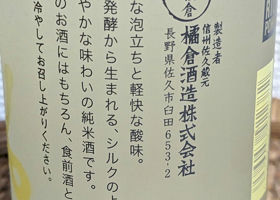 倉
製造者
信州佐久蔵元
橘倉酒造株式会社
長野県佐久市臼田653-2
な泡立ちと軽快な酸味。
発酵から生まれる、シルクのよ
やかな味わいの純米酒です。
のお酒にはもちろん、食前酒と
冷やしてお召し上がりください。